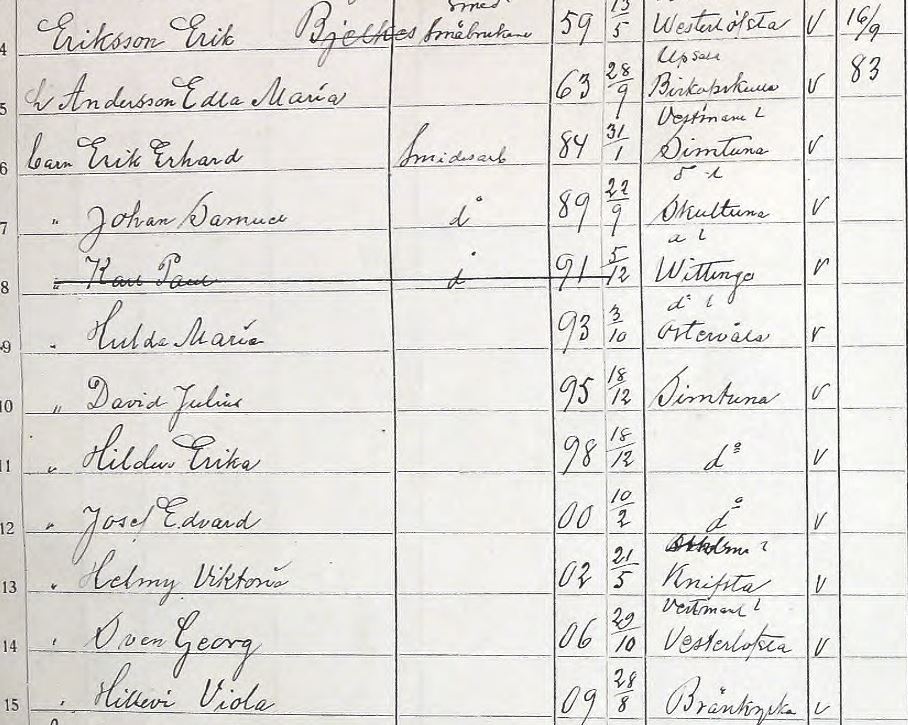 Smed 13
4 Eriksson Erik Bjelkes Småbrukare 59 5 Westerlöfsta v 16/9
Upsala
5 h Andersson Edla Maria 63 28/9 v 83
Vestmanl
6 barn Erik Erhard Smidesarb 84 31/1 Simtuna v
7 " Johan Samuel do 89 22/9 Skultuna v
8 " Karl Paul do 91 5/12 Wittinge v
9 " Hulda Maria 93 3/10 Östervåla v
10 " David Julius 95 18/12 Simtuna v
11 " Hildur Erika 98 18/12 do v
12 " Josef Edvard 00 10/2 do v
13 " Helmy Viktoria 02 21/5 Knifsta v
Vestmanl
14 " Sven Georg 06 29/10 Vesterlöfsta v
15 " Hillevi Viola 09 28/8 Brännkyrka v